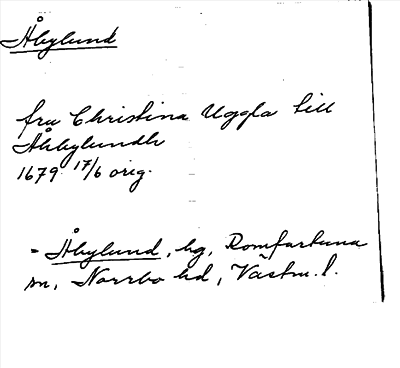 Åbylund
fru Christina Uggla till
Åhbylundh
1679 17/6 orig.
- Åbylund, hg, Romfartuna
sn, Norrbo hd, Västm. l.